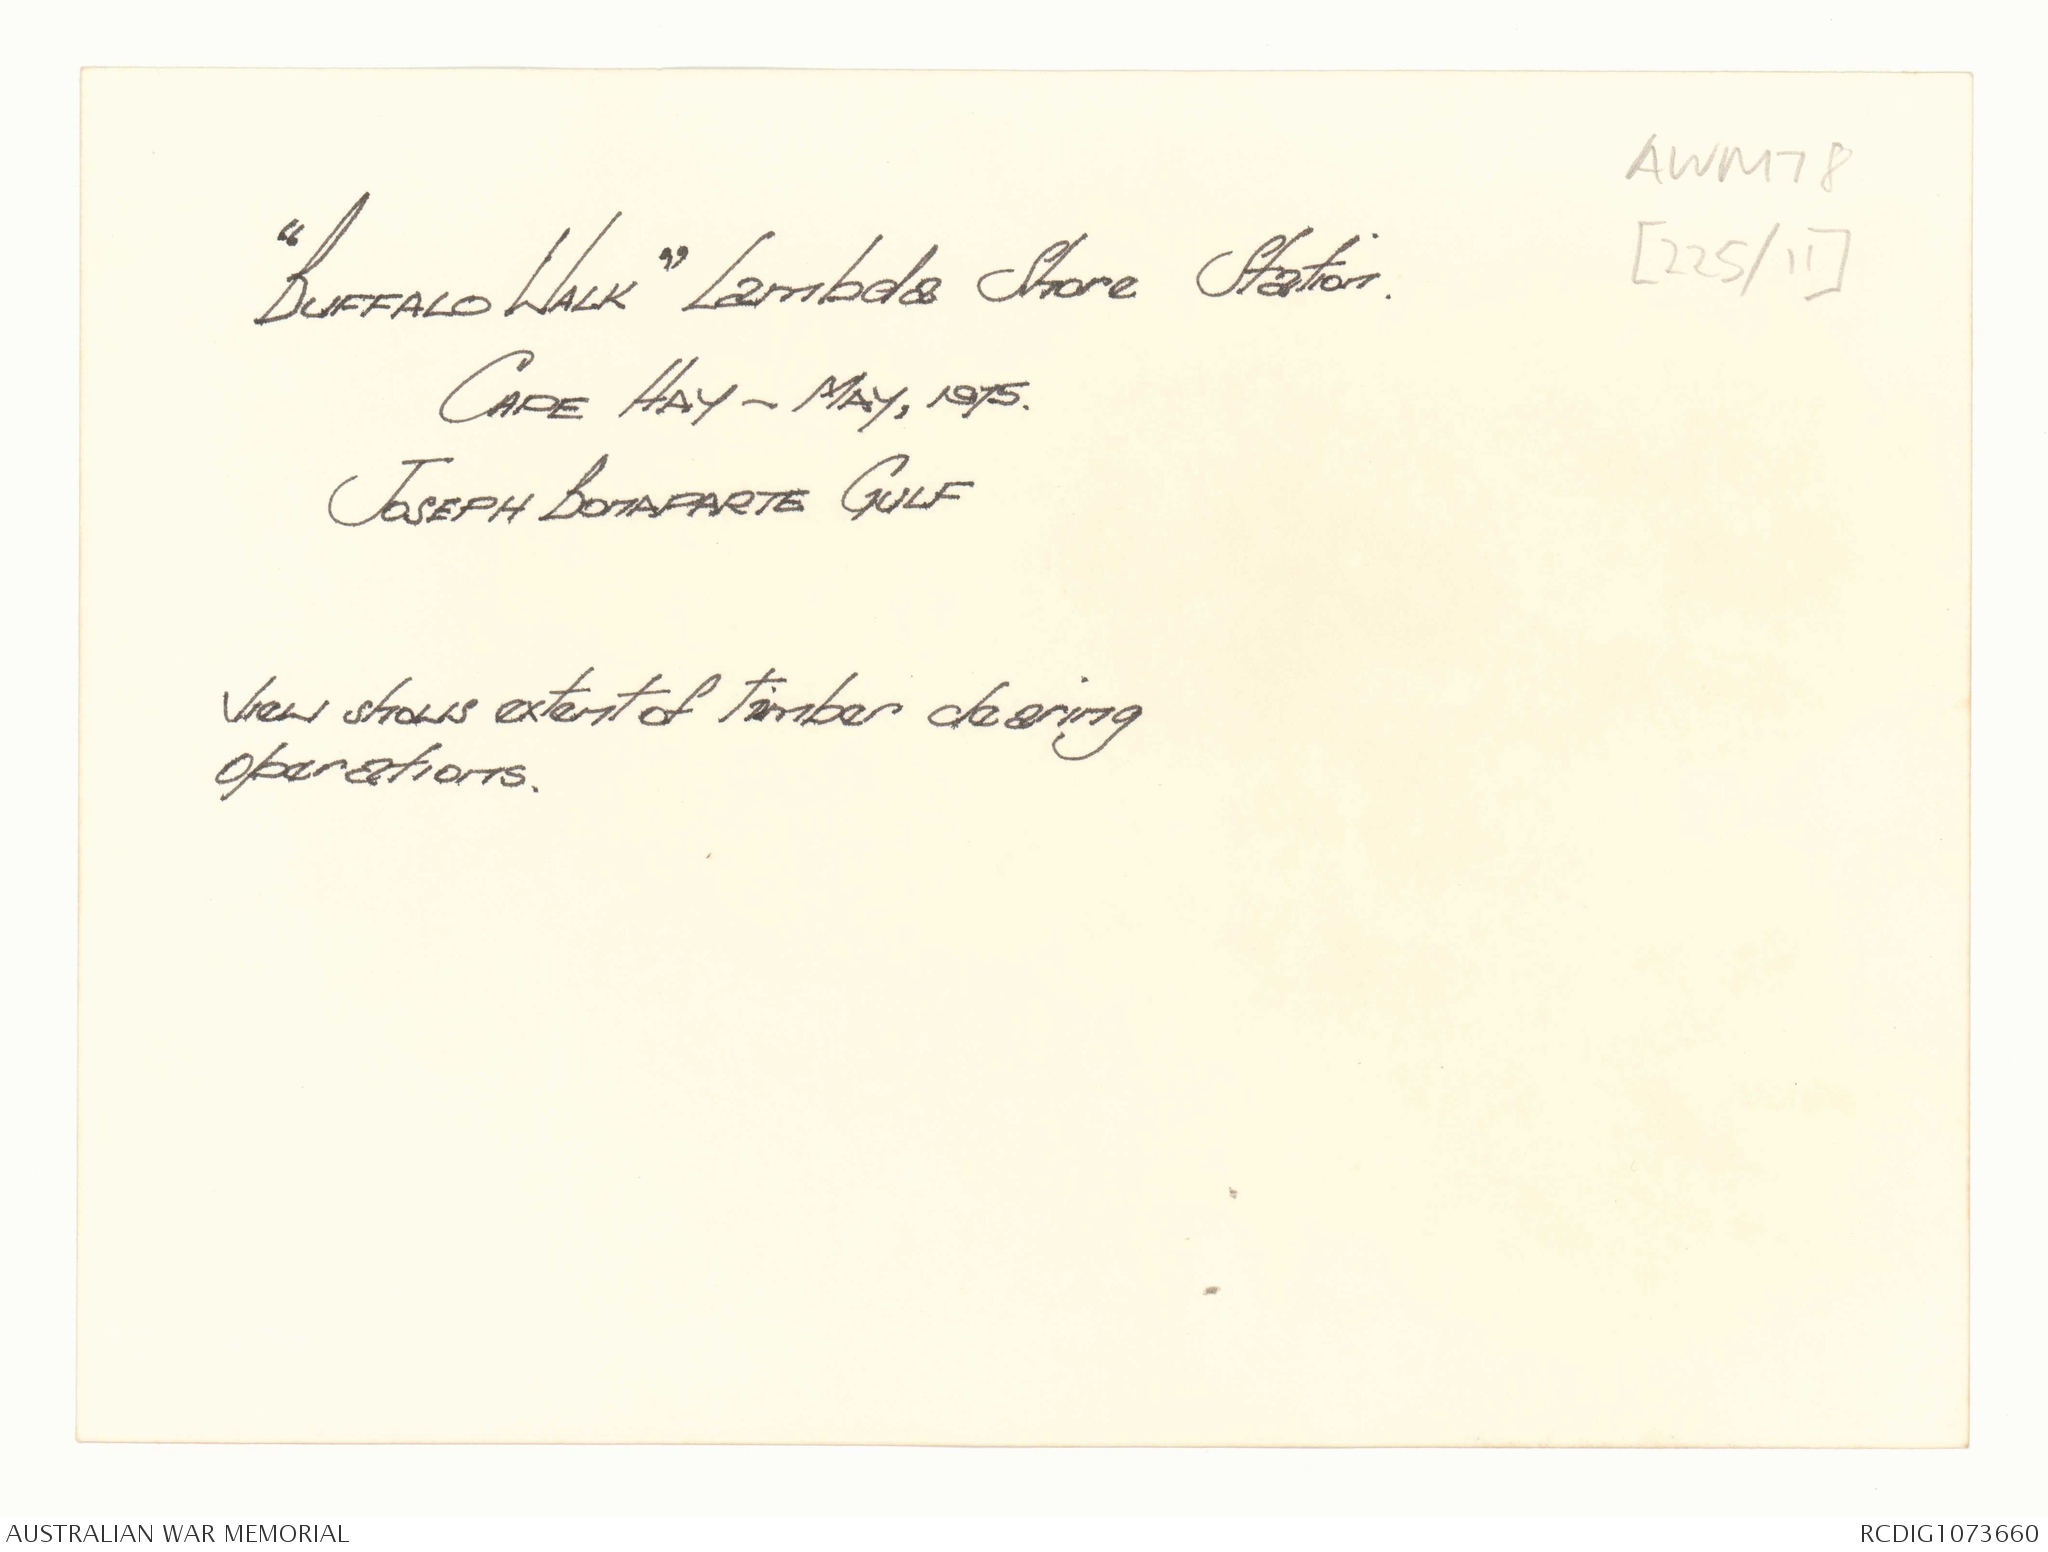 AWM78
[225/11]
"BUFFALO WALK" Lambda Shore Station.
CAPE HAY - MAY, 1975.
JOSEPH BONAPARTE GULF
View shows extent of timber clearing
operations.
AUSTRALIAN WAR MEMORIAL
RCDIG1073660